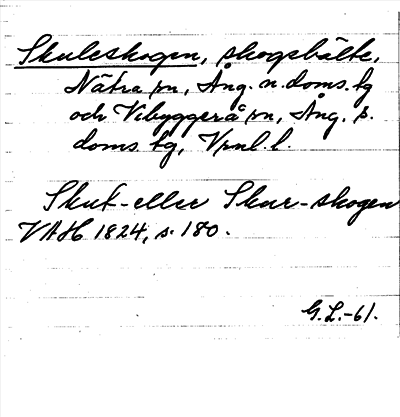 Skuleskogen, skogsbälte,
Nätra sn, Ång. n. doms. tg
och Vibyggerå sn, Ång. s.
doms. tg, Vnl. l.
Skut- eller Skur-skogen
VAH 1824, s. 180.
G.L.-61.